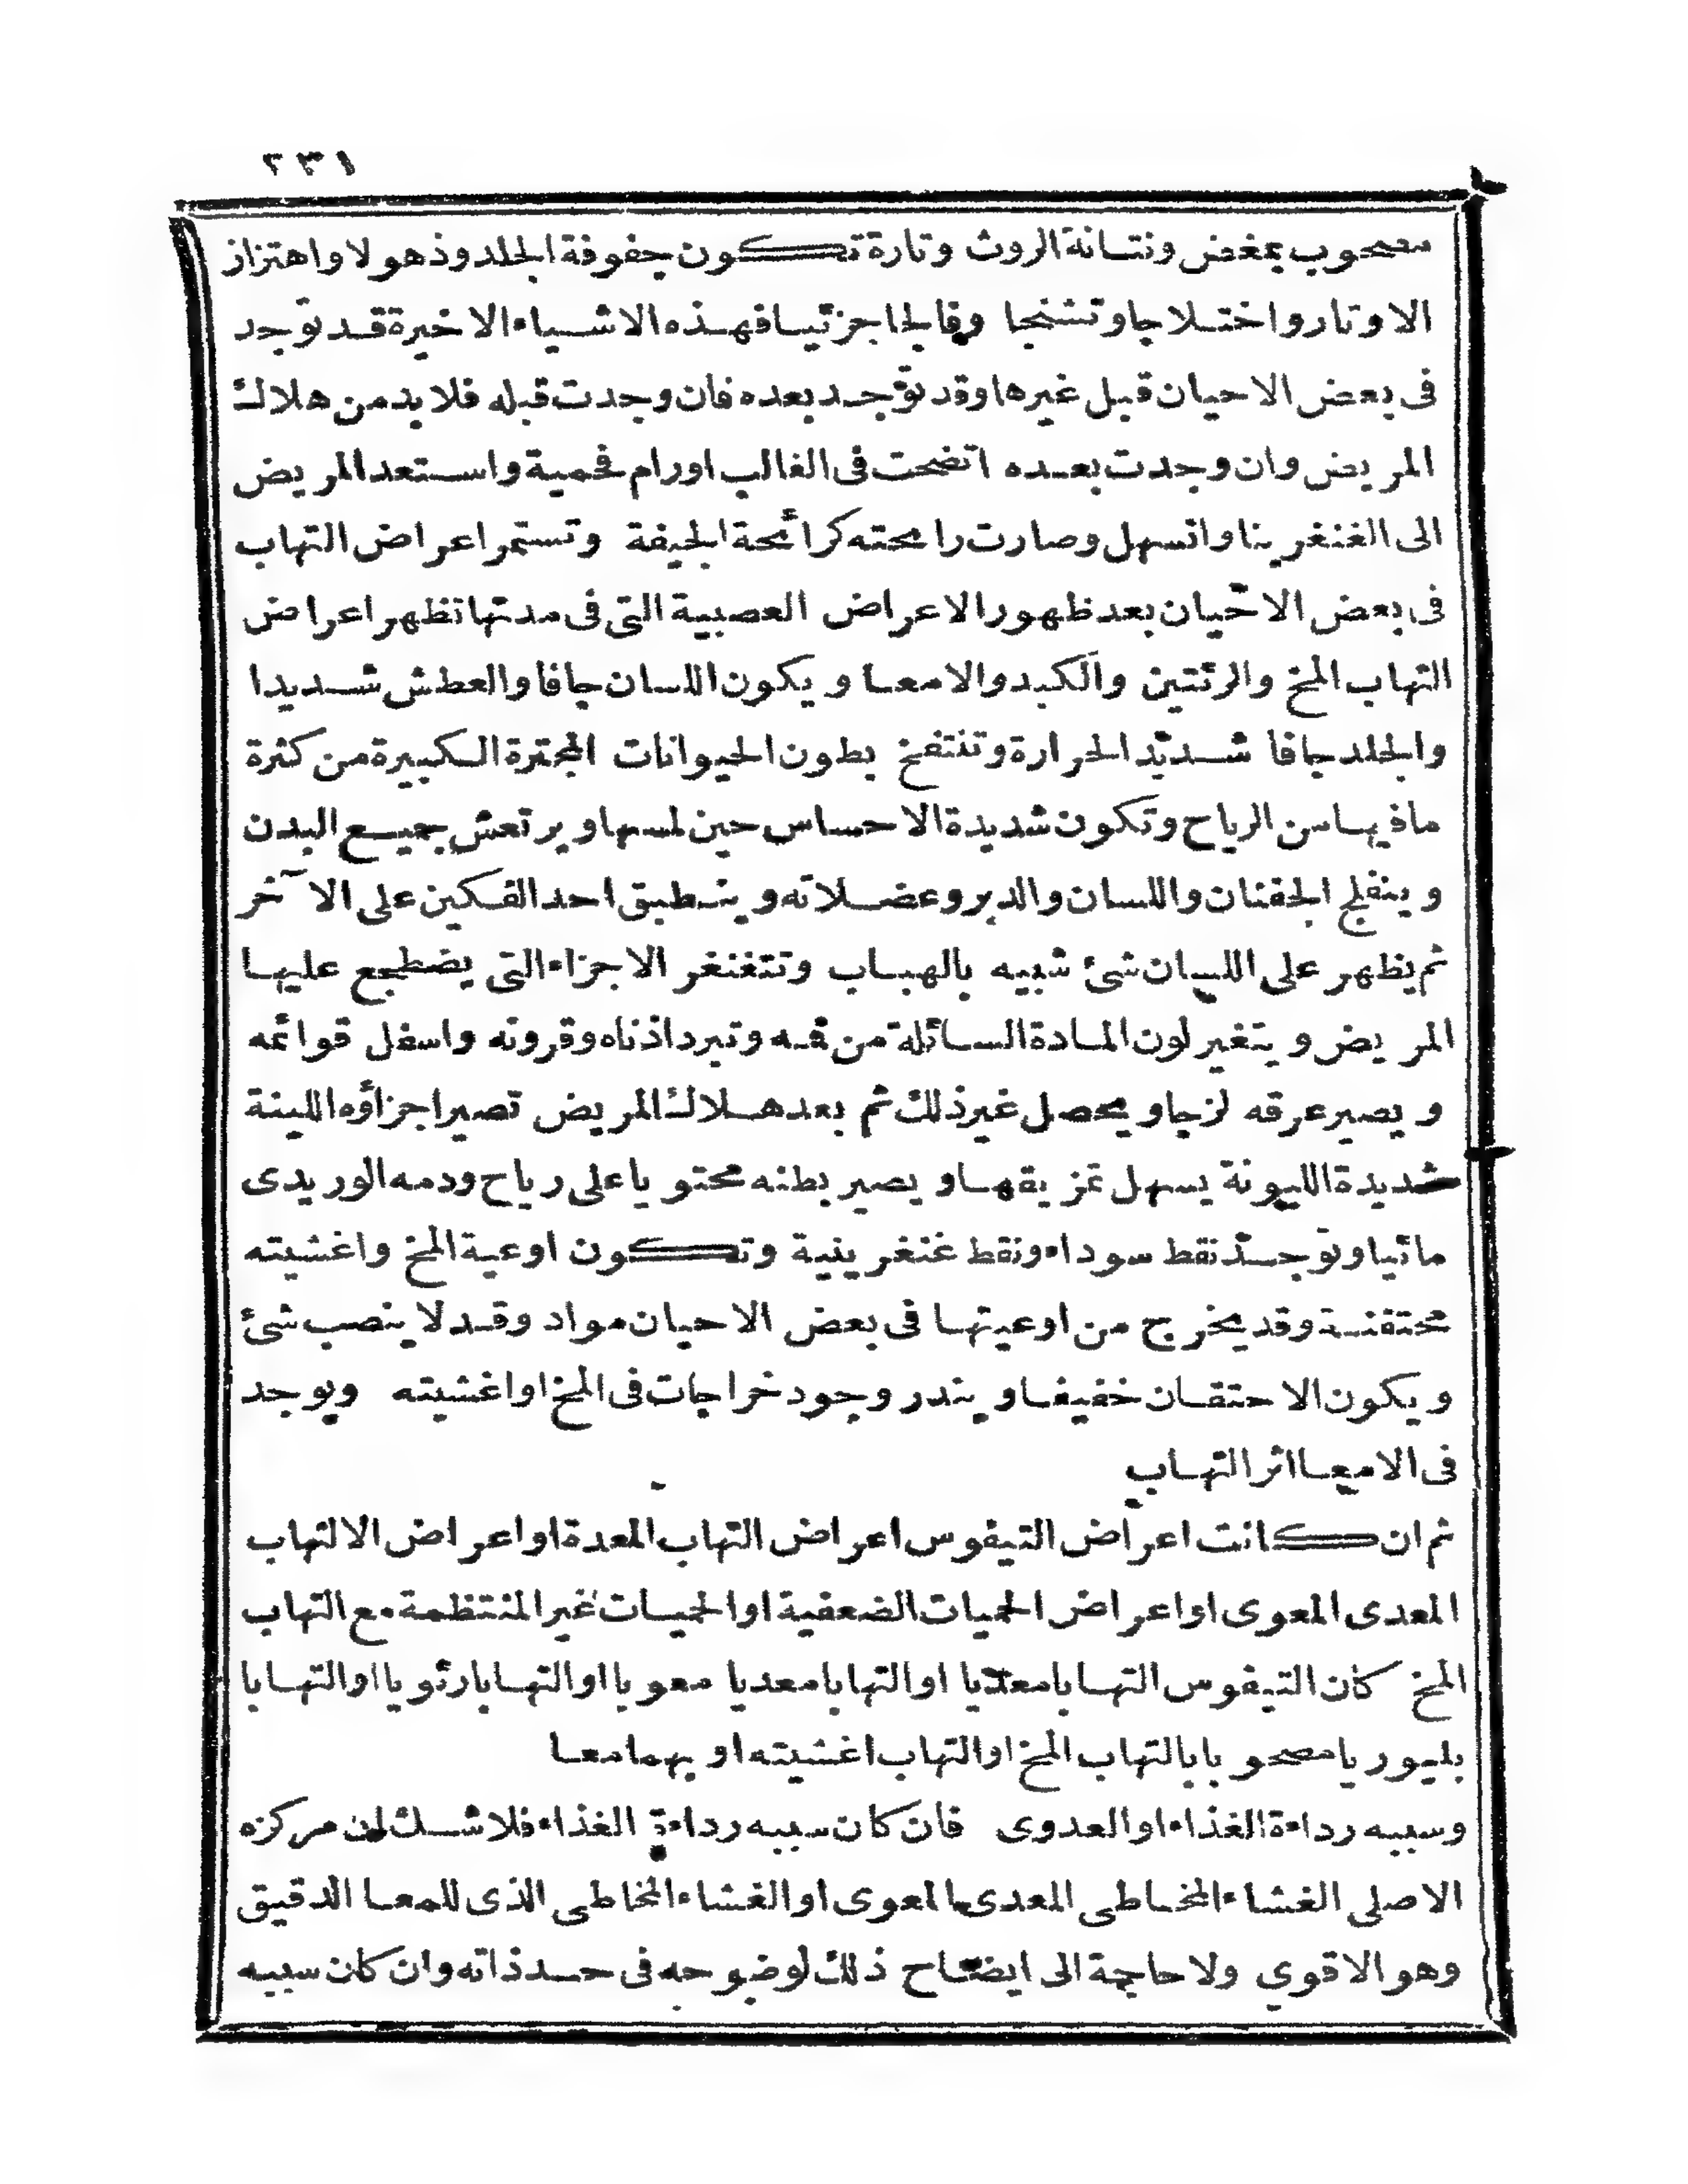 ٢٣١
مصحوب بمغض ونتانة الروث وتارة تكون جفوفة الجلد وذهولا واهتزاز
الاوتار واختلاجا وتشنجا وفالجا جزئيا فهذه الاشياء الاخيرة قد توجد
فى بعض الاحيان قبل غيرها وقد توجد بعده فان وجدت قبله فلابد من هلاك
المريض وان وجدت بعده اتضحت فى الغالب اورام فحمية واستعد المريض
الى الغنغرينا واتسهل وصارت رامحته كرائحة الجيفة وتستمر اعراض التهاب
فى بعض الاحيان بعد ظهور الاعراض العصبية التى فى مدتها تظهر اعراض
التهاب المخ والرئتين والكبد والامعا ويكون اللسان جافا والعطش شديدا
والجلد جافا شديد الحرارة وتنتفخ بطون الحيوانات المجترة الكبيرة من كثرة
مافيها من الرياح وتكون شديدة الاحساس حين لمسها ويرتعش جميع البدن
وينفلج الجفنان واللسان والدبر وعضلاته وينطبق احد الفكين على الآخر
ثم يظهر على اللسان شئ شبيه بالهباب وتتغنغر الاجزاء التى يضطجع عليها
المريض ويتغير لون المادة السائلة من فمه وتبرد اذناه وقرونه واسفل قوائمه
ويصير عرقه لزجا ويحصل غير ذلك ثم بعد هلاك المريض تصير اجزاؤه اللينة
شديدة الليونة يسهل تمزيقها ويصير بطنه محتويا على رياح ودمه الوريدى
مائيا وتوجد نقط سوداء ونقط غنغرينية وتكون اوعية المخ واغشيته
محتقنة وقد يخرج من اوعيتها فى بعض الاحيان مواد وقد لا ينصب شئ
ويكون الاحتقان خفيفا ويندر وجود خراجات فى المخ او اغشيته ويوجد
فى الامعا اثر التهاب
ثم ان كانت اعراض التيفوس اعراض التهاب المعدة او اعراض الالتهاب
المعدى المعوى او اعراض الحميات الضعفية او الحميات غير المنتظمة مع التهاب
المخ كان التيفوس التهابا معديا او التهابا معديا معويا او التهابا رئويا او التهابا
بليوريا مصحوبا بالتهاب المخ او التهاب اغشيته او بهما معا
وسببه رداءة الغذاء او العدوى فان كان سببه رداءة الغذاء فلا شك ان مركزه
الاصلى الغشاء المخاطى المعدى المعوى او الغشاء المخاطى الذى للمعا الدقيق
وهو الاقوى ولا حاجة الى ايضاح ذلك لوضوحه فى حد ذاته وان كان سببه